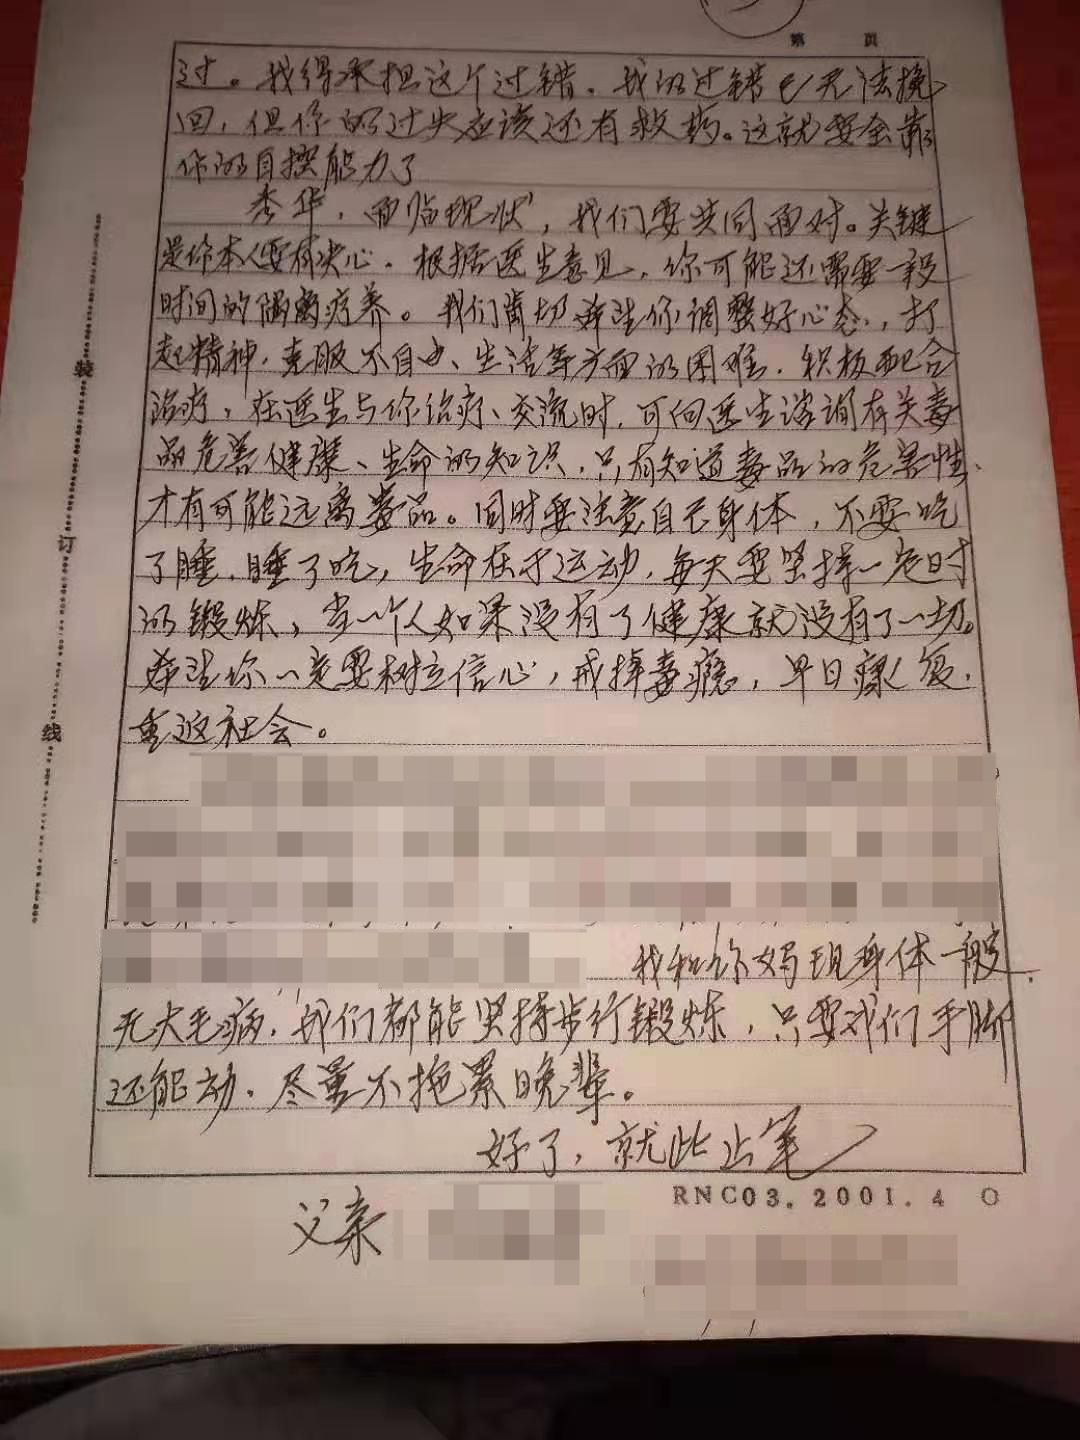 第 页
过。我得承担这个过错。我的过错已无法挽
回，但你的过失应该还有救药。这就要全靠
你的自控能力了
秀华，面临现状，我们要共同面对。关键
是你本人要有决心。根据医生意见，你可能还需要一段
时间的隔离疗养。我们真切希望你调整好心态，打
起精神，克服不自由、生活等方面的困难，积极配合
治疗，在医生与你治疗、交流时，可向医生咨询有关毒
品危害健康、生命的知识，只有知道毒品的危害性，
才有可能远离毒品。同时要注意自己身体，不要吃
了睡，睡了吃，生命在于运动，每天要坚持一定时
的锻炼，当一个人如果没有了健康就没有了一切。
希望你一定要树立信心，戒掉毒瘾，早日康复，
重返社会。
我和你妈现身体一般，
无大毛病，我们都能坚持步行锻炼，只要我们手脚
还能动，尽量不拖累晚辈。
好了，就此止笔
RNC03.2001.4
父亲
装
订
线